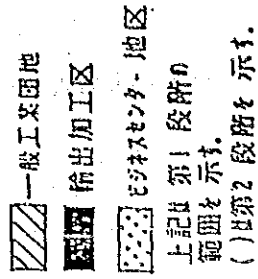 一般工業団地
輸出加工区
ビジネスセンター地区
上記は第1段階の
範囲を示す。
( )は第2段階を示す。